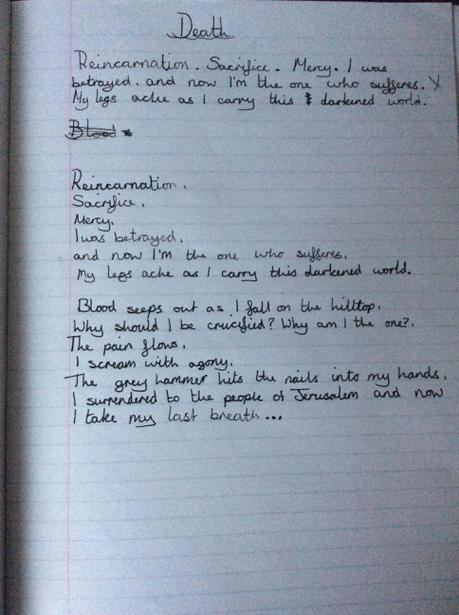 Death
Reincarnation. Sacrifice. Mercy. I was
betrayed. and now I'm the one who sufferes. X
My legs ache as I carry this darkened world.
Blood
Reincarnation.
Sacrifice.
Mercy.
I was betrayed.
and now I'm the one who sufferes.
My legs ache as I carry this darkened world.
Blood seeps out as I fall on the hilltop.
Why should I be crucified? Why am I the one?.
The pain flows.
I scream with agony.
The grey hammer hits the nails into my hands.
I surrendered to the people of Jerusalem and now
I take my last breath...